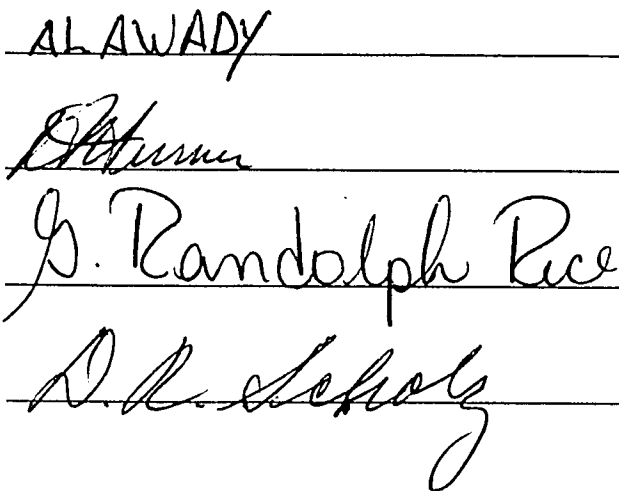 AL AWADY
G. Randolph Rice
D. R. Scholz